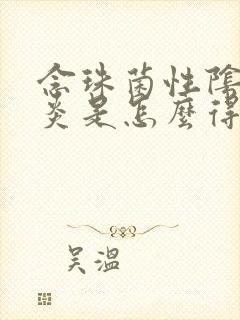 念珠菌性陰
炎是怎麼得
吴溫